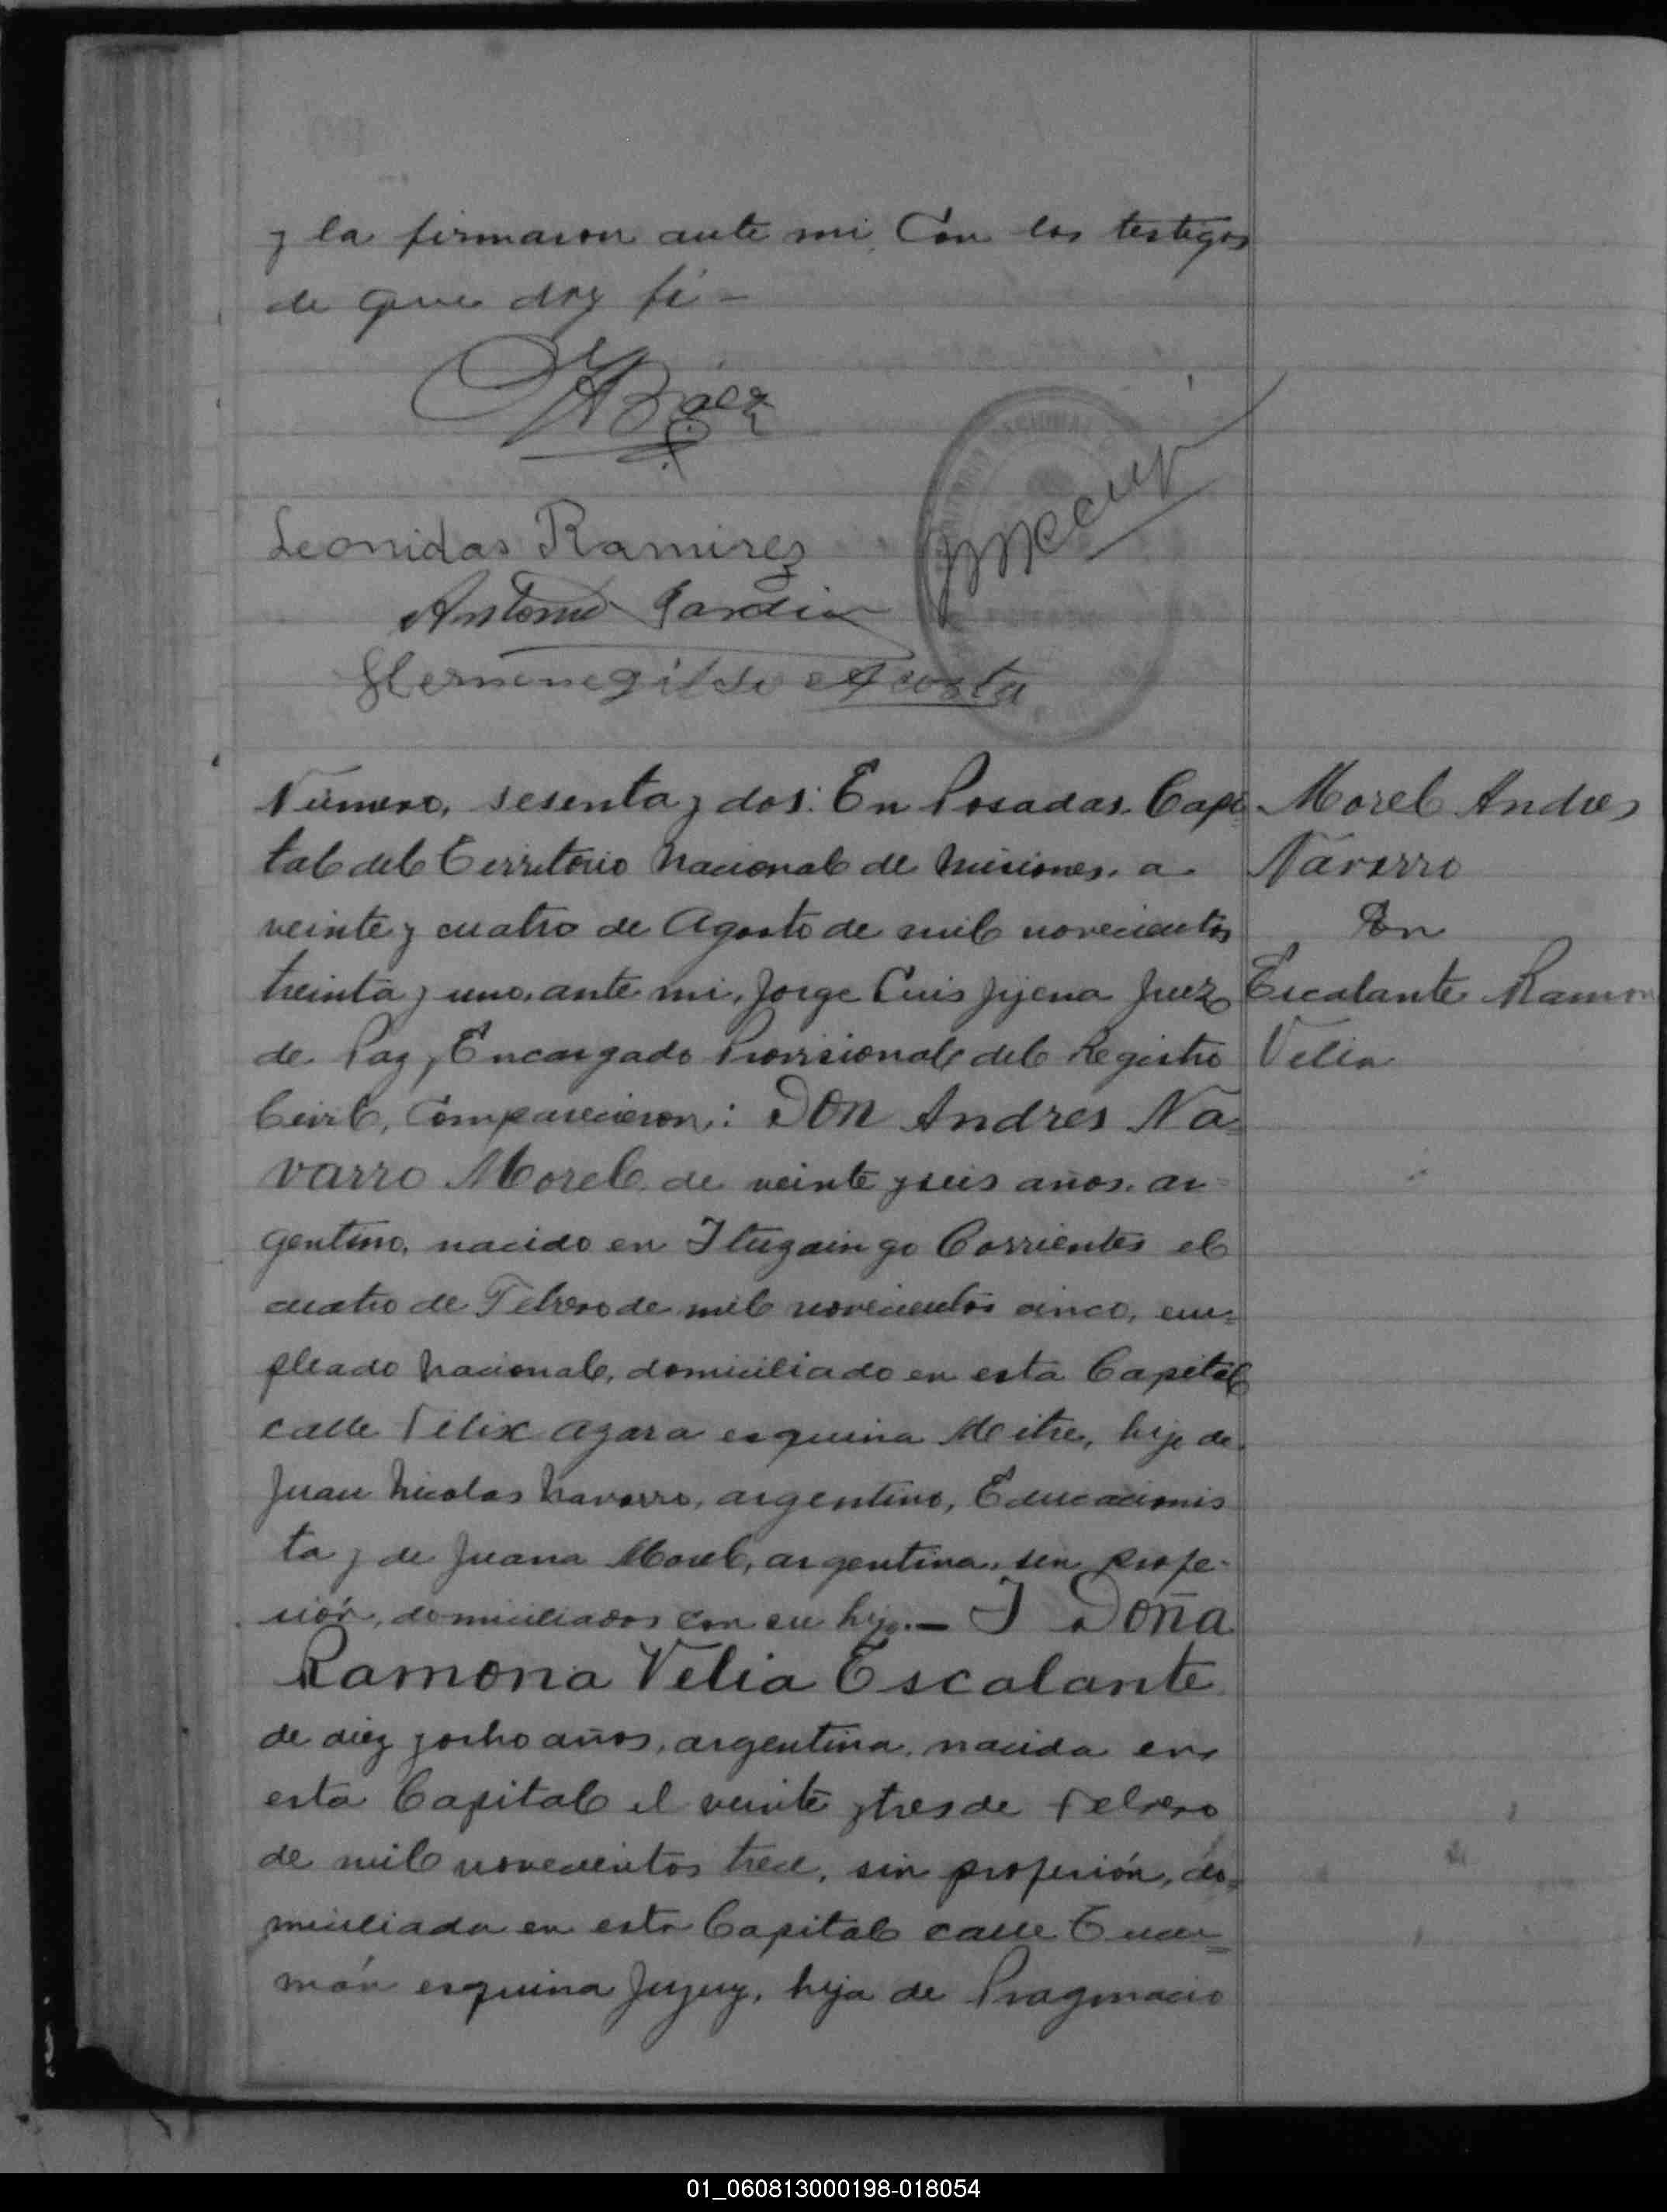 y la firmaron ante mi Con los testigos
de que doy fé -
Baez
Leonidas Ramirez
Antonio
Hermenegildo Acosta
Número, sesenta y dos: En Posadas. Capi
tal del Territorio Nacional de Misiones. a
veinte y cuatro de Agosto de mil novecientos
treinta y uno, ante mi, Jorge Luis Jijena Juez
de Paz, Encargado Provisional del Registro
Civil, Comparecieron: Don Andres Na=
varro Morel. de veinte y seis años. ar=
gentino, nacido en Ituzaingo Corrientes el
cuatro de Febrero de mil novecientos cinco, em=
pleado Nacional, domiciliado en esta Capital
calle Félix Azara esquina Mitre, hijo de
Juan Nicolas Navarro, argentino, Educacionis
ta y de Juana Morel, argentina, sin profe-
sión, domiciliados con su hijo. - Y Doña
Ramona Velia Escalante
de diez y ocho años, argentina, nacida en
esta Capital el veinte y tres de Febrero
de mil novecientos trece, sin profesión, do=
miciliada en esta Capital calle Tucu=
mán esquina Jujuy, hija de Pragmacio
Morel Andres
Navarro
Con
Escalante Ramon
Velia
01_060813000198-018054